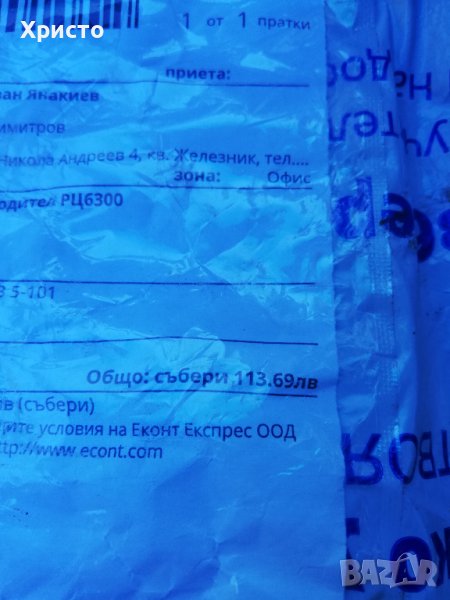 Христо
1 от 1 пратки
приета:
ван Янакиев
имитров
Никола Андреев 4, кв. Железник, тел....
зона: Офис
одител РЦ6300
3 5-101
Общо: събери 113.69лв
лв (събери)
ите условия на Еконт Експрес ООД
ttp://www.econt.com
BAZAR